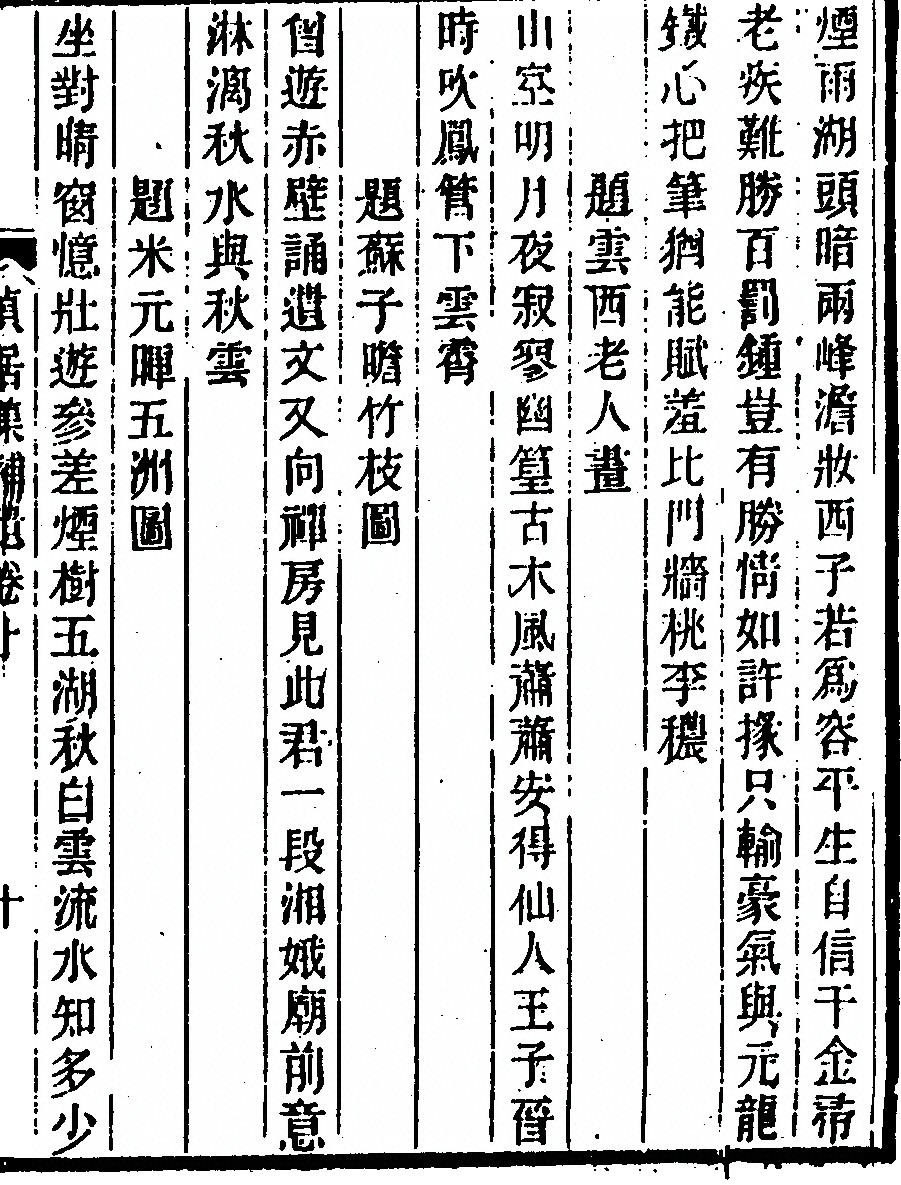 煙雨湖頭暗兩峰澹妝西子若爲容平生自信千金帚
老疾難勝百罰鍾豈有勝情如許掾只輸豪氣與元龍
鐵心把筆猶能賦羞比門牆桃李穠
題雲西老人畫
山空明月夜寂寥幽篁古木風蕭蕭安得仙人王子晉
時吹鳳管下雲霄
題蘇子瞻竹枝圖
曾遊赤壁誦遺文又向禪房見此君一段湘娥廟前意
淋漓秋水與秋雲
題米元暉五洲圖
坐對晴窗憶壯遊參差煙樹五湖秋白雲流水知多少
貞居集補遺卷 十